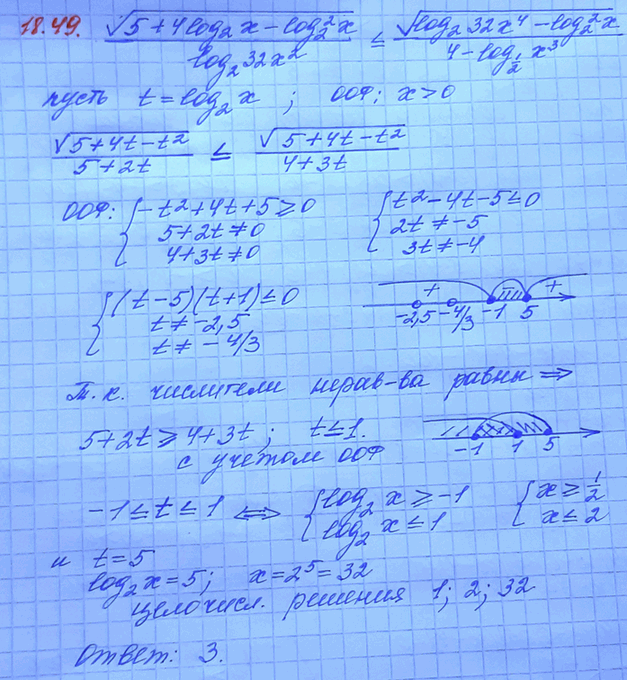 18.49. √(5+4log₂x−log₂²x) / log₂32x² ≤ √(log₂32x⁴−log₂²x) / (4−log_{1/2}x³)
пусть t=log₂x; ООФ: x>0
√(5+4t−t²) / (5+2t) ≤ √(5+4t−t²) / (4+3t)
ООФ: { −t²+4t+5≥0 { t²−4t−5≤0
5+2t≠0 2t≠−5
4+3t≠0 3t≠−4
{ (t−5)(t+1)≤0 + +
t≠−2,5 −2,5 −4/3 −1 5
t≠−4/3
Т.к. числители нерав-ва равны ⇒
5+2t≥4+3t; t≤1. −1 1 5
с учетом ООФ
−1≤t≤1 ⇔ { log₂x≥−1 { x≥1/2
log₂x≤1 x≤2
и t=5
log₂x=5; x=2⁵=32
целочисл. решения 1; 2; 32
Ответ: 3.